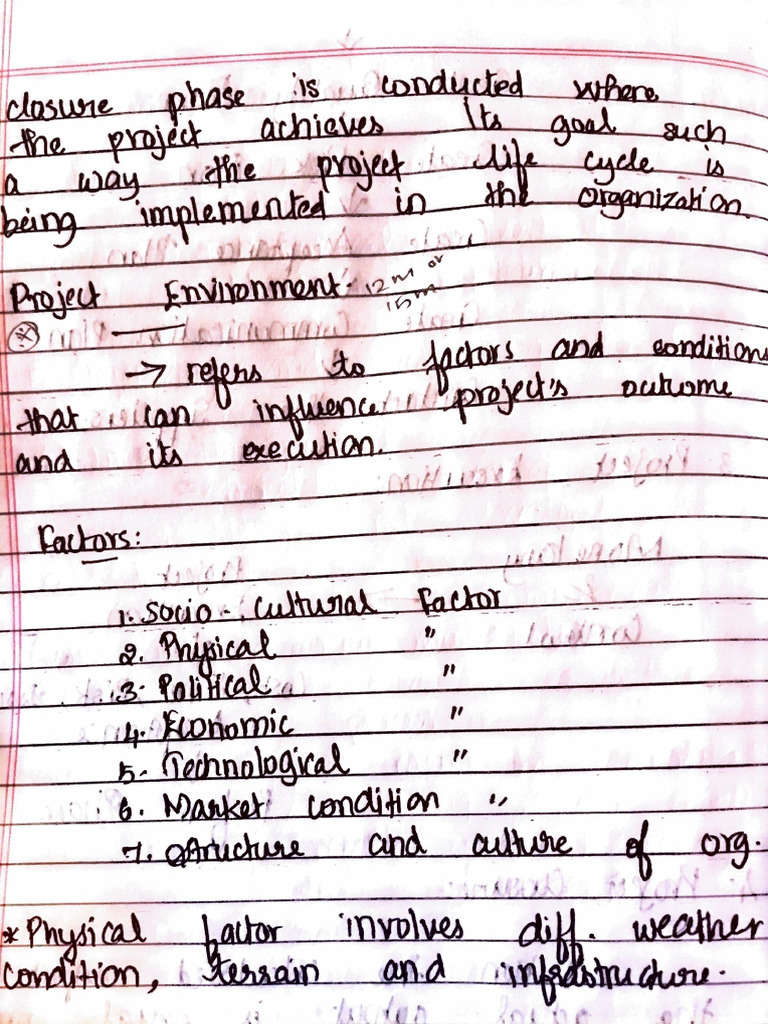 closure phase is conducted where
the project achieves its goal such
a way the project life cycle is
being implemented in the organization.
Project Environment- 12m or
15m
* → refers to factors and conditions
that can influence project's outcome
and its execution.
Factors:
1. Socio-cultural Factor
2. Physical "
3. Political "
4. Economic "
5. Technological "
6. Market condition "
7. Structure and culture of org.
* Physical factor involves diff. weather
condition, terrain and infrastructure.